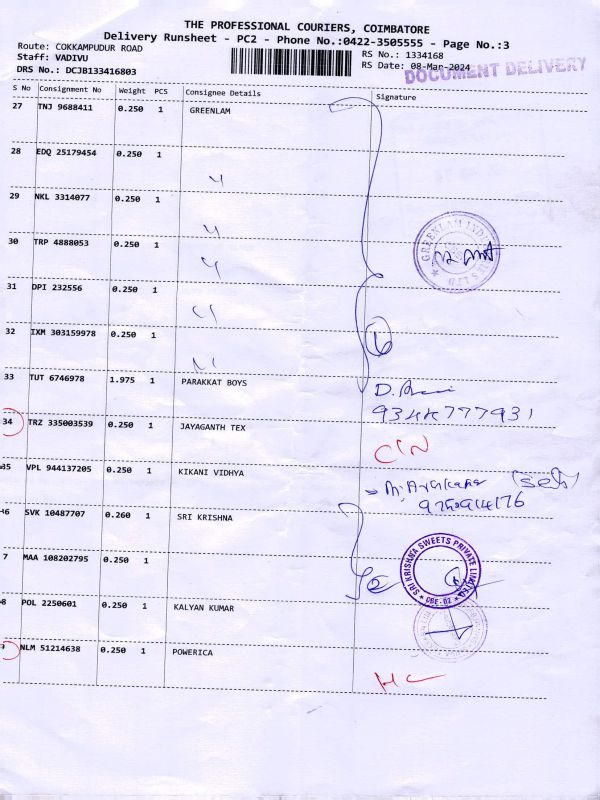 THE PROFESSIONAL COURIERS, COIMBATORE
Delivery Runsheet - PC2 - Phone No.:0422-3505555 - Page No.:3
Route: COKKAMPUDUR ROAD
Staff: VADIVU
DRS No.: DCJB133416803
RS No.: 1334168
RS Date: 08-Mar-2024
DOCUMENT DELIVERY
S No Consignment No Weight PCS Consignee Details Signature
27 TNJ 9688411 0.250 1 GREENLAM
28 EDQ 25179454 0.250 1
29 NKL 3314077 0.250 1
30 TRP 4888053 0.250 1
GREENLAM
31 DPI 232556 0.250 1
32 IXM 303159978 0.250 1
6
33 TUT 6746978 1.975 1 PARAKKAT BOYS
34 TRZ 335003539 0.250 1 JAYAGANTH TEX
C/N
35 VPL 944137205 0.250 1 KIKANI VIDHYA
SVK 10487707 0.260 1 SRI KRISHNA
SRI KRISHNA SWEETS PRIVATE LIMITED
7 MAA 108202795 0.250 1
8 POL 2250601 0.250 1 KALYAN KUMAR
NLM 51214638 0.250 1 POWERICA